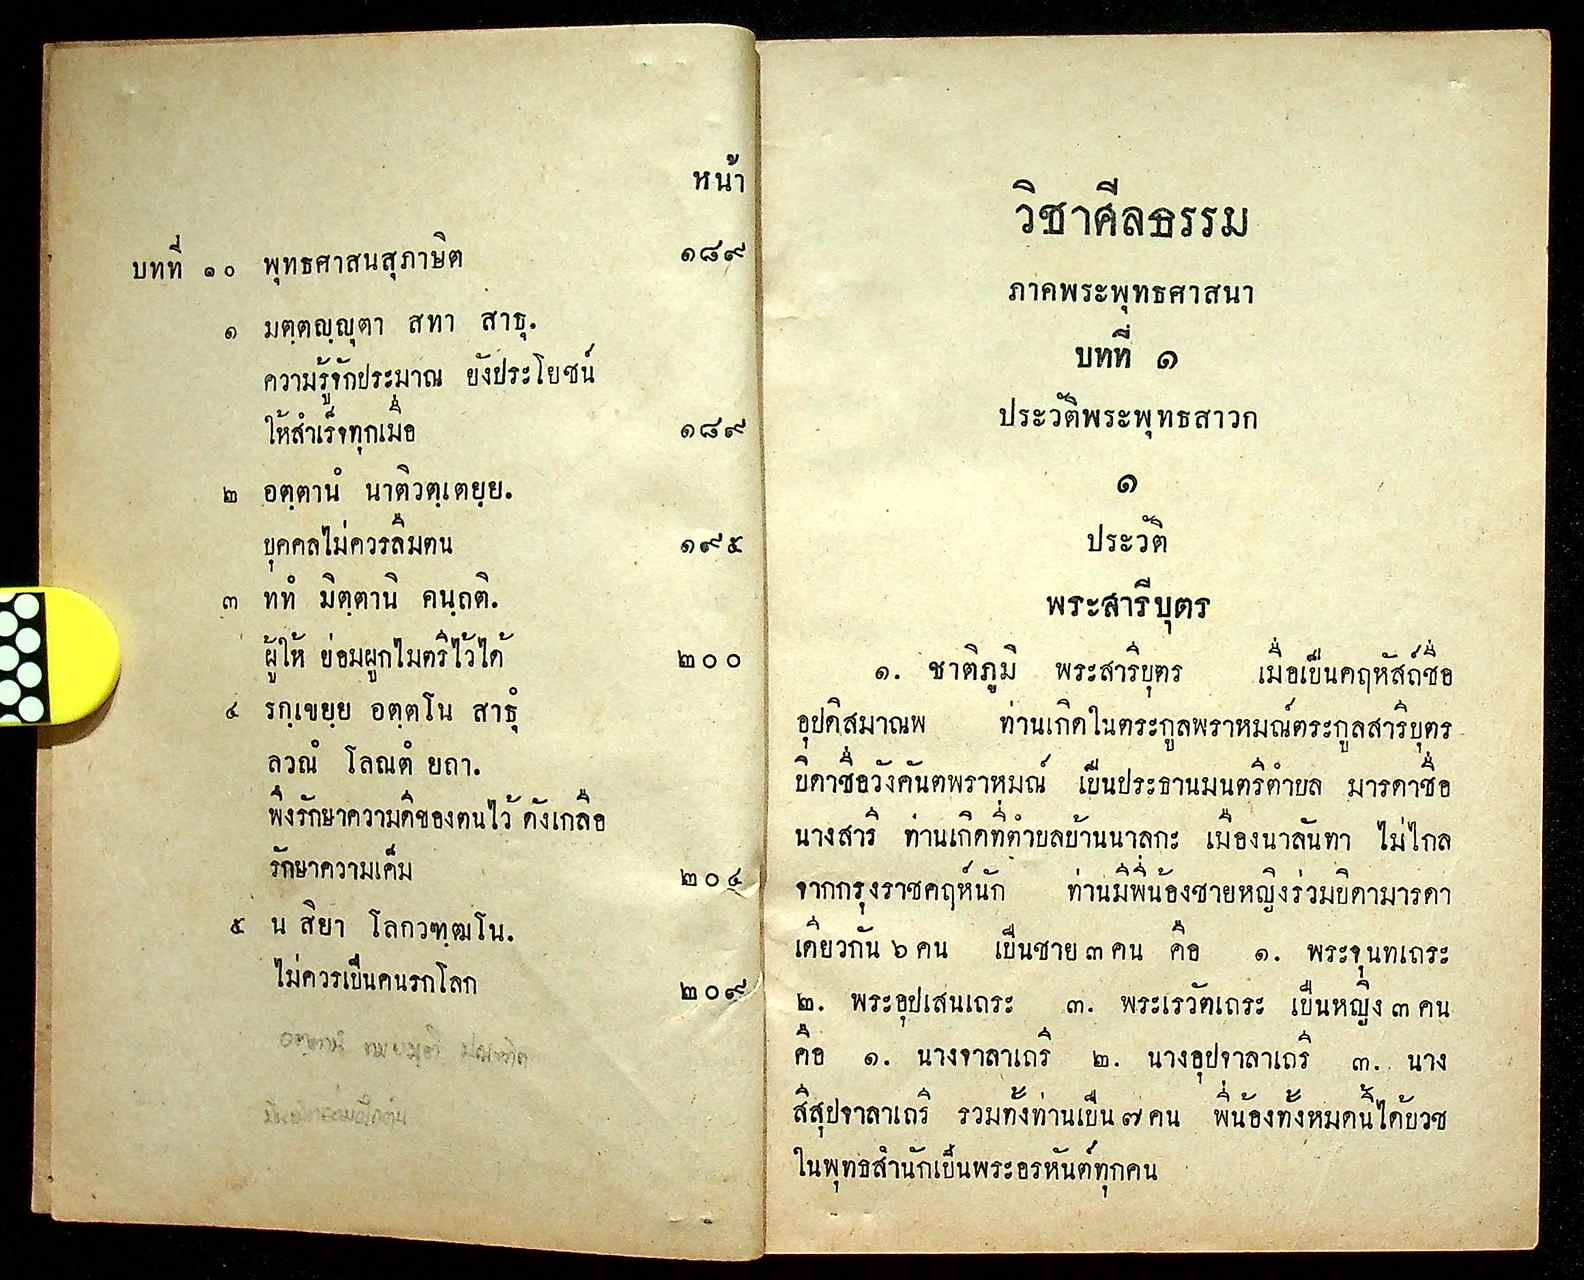 หน้า
บทที่ ๑๐ พุทธศาสนสุภาษิต ๑๘๙
๑ มตฺตญฺญุตา สทา สาธุ.
ความรู้จักประมาณ ยังประโยชน์
ให้สำเร็จทุกเมื่อ ๑๘๙
๒ อตฺตานํ นาติวตฺเตยฺย.
บุคคลไม่ควรลืมตน ๑๙๕
๓ ททํ มิตฺตานิ คนฺถติ.
ผู้ให้ ย่อมผูกไมตรีไว้ได้ ๒๐๐
๔ รกฺเขยฺย อตฺตโน สาธุํ
ลวณํ โลณตํ ยถา.
พึงรักษาความดีของตนไว้ ดังเกลือ
รักษาความเค็ม ๒๐๔
๕ น สิยา โลกวฑฺฒโน.
ไม่ควรเป็นคนรกโลก ๒๐๙
วิชาศีลธรรม
ภาคพระพุทธศาสนา
บทที่ ๑
ประวัติพระพุทธสาวก
๑
ประวัติ
พระสารีบุตร
๑. ชาติภูมิ พระสารีบุตร เมื่อเป็นคฤหัสถ์ชื่อ
อุปติสมาณพ ท่านเกิดในตระกูลพราหมณ์ตระกูลสารีบุตร
บิดาชื่อวังคันตพราหมณ์ เป็นประธานมนตรีตำบล มารดาชื่อ
นางสารี ท่านเกิดที่ตำบลบ้านนาลกะ เมืองนาลันทา ไม่ไกล
จากกรุงราชคฤห์นัก ท่านมีพี่น้องชายหญิงร่วมบิดามารดา
เดียวกัน ๖ คน เป็นชาย ๓ คน คือ ๑. พระจุนทเถระ
๒. พระอุปเสนเถระ ๓. พระเรวัตเถระ เป็นหญิง ๓ คน
คือ ๑. นางจาลาเถรี ๒. นางอุปจาลาเถรี ๓. นาง
สีสุปจาลาเถรี รวมทั้งท่านเป็น ๗ คน พี่น้องทั้งหมดนี้ได้บวช
ในพุทธสำนักเป็นพระอรหันต์ทุกคน